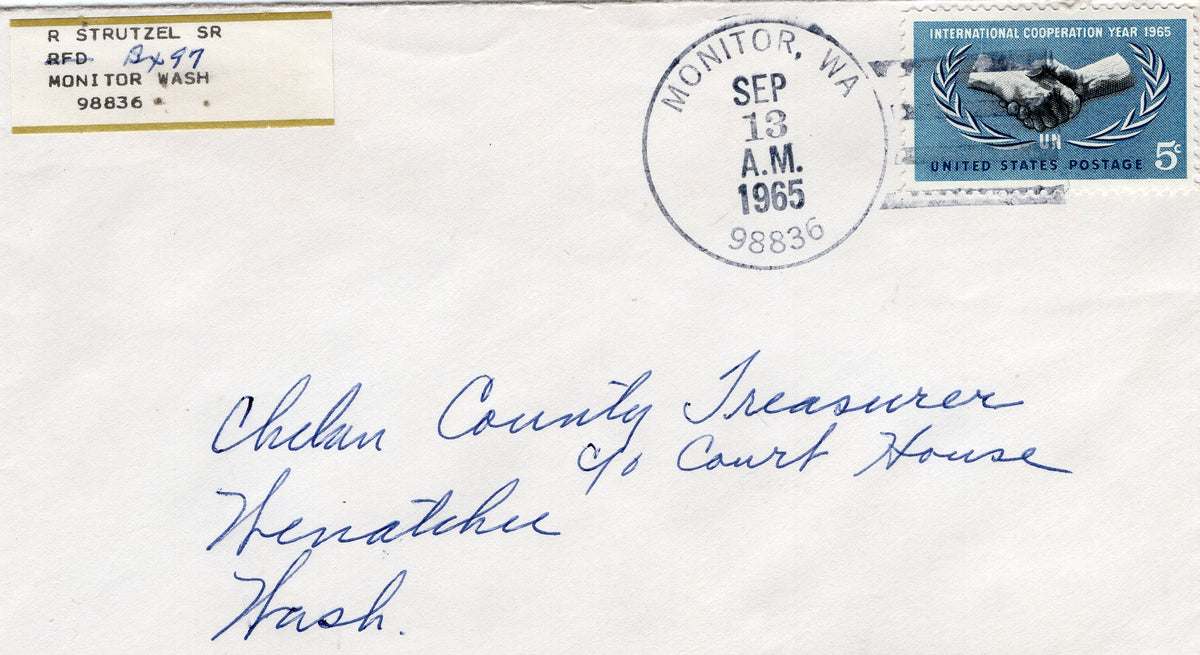 R STRUTZEL SR
RFD Bx 97
MONITOR WASH
98836
MONITOR, WA
SEP
13
A.M.
1965
98836
INTERNATIONAL COOPERATION YEAR 1965
UN
UNITED STATES POSTAGE 5c
Chelan County Treasurer
c/o Court House
Wenatchee
Wash.